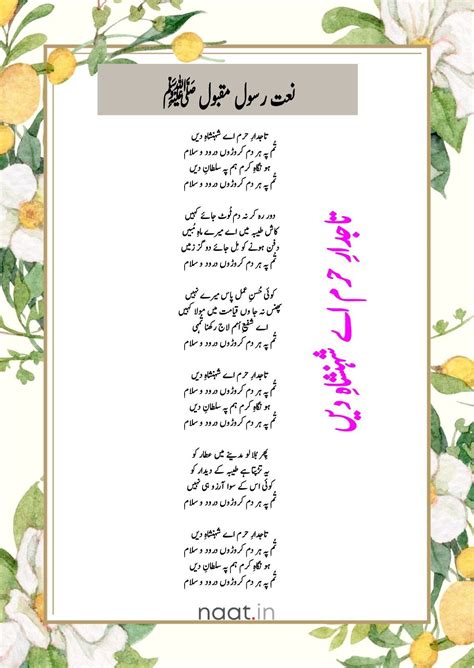 نعت رسول مقبول ﷺ
تاجدارِ حرم اے شہنشاہِ دیں
تُم پہ ہر دم کروڑوں درود و سلام
ہو نگاہِ کرم ہم پہ سلطانِ دیں
تُم پہ ہر دم کروڑوں درود و سلام
دور رہ کر نہ دم ٹوٹ جائے کہیں
کاش طیبہ میں اے میرے ماہِ مُبیں
دفن ہونے کو مل جائے دو گز زمیں
تُم پہ ہر دم کروڑوں درود و سلام
کوئی حُسنِ عمل پاس میرے نہیں
پھنس نہ جاوں قیامت میں مولا کہیں
اے شفیعِ اُمم لاج رکھنا تُمہی
تُم پہ ہر دم کروڑوں درود و سلام
تاجدارِ حرم اے شہنشاہِ دیں
تُم پہ ہر دم کروڑوں درود و سلام
ہو نگاہِ کرم ہم پہ سلطانِ دیں
تُم پہ ہر دم کروڑوں درود و سلام
پھر بُلا لو مدینے میں عطار کو
یہ تڑپتا ہے طیبہ کے دیدار کو
کوئی اس کے سوا آرزو ہی نہیں
تُم پہ ہر دم کروڑوں درود و سلام
تاجدارِ حرم اے شہنشاہِ دیں
تُم پہ ہر دم کروڑوں درود و سلام
ہو نگاہِ کرم ہم پہ سلطانِ دیں
تُم پہ ہر دم کروڑوں درود و سلام
تاجدارِ حرم اے شہنشاہِ دیں
naat.in